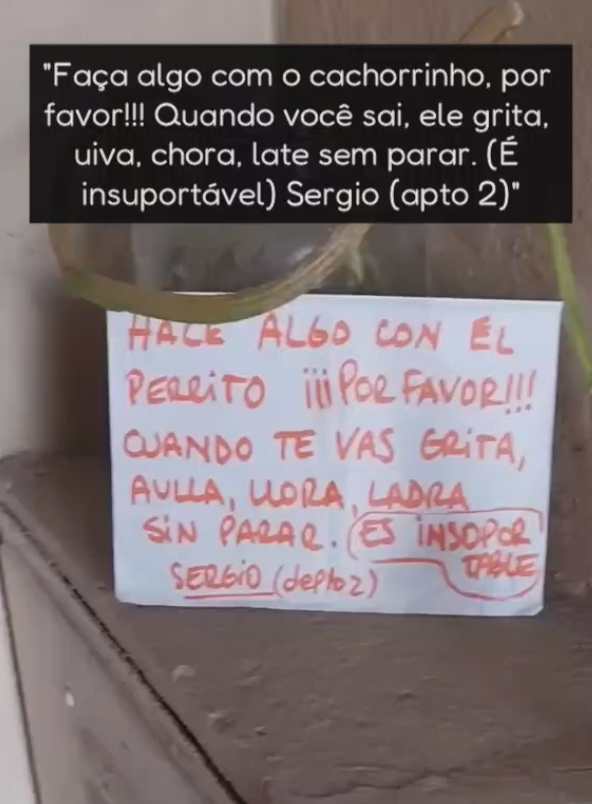 "Faça algo com o cachorrinho, por
favor!!! Quando você sai, ele grita,
uiva, chora, late sem parar. (É
insuportável) Sergio (apto 2)"
HACE ALGO CON EL
PERRITO ¡¡¡POR FAVOR!!!
CUANDO TE VAS GRITA,
AULLA, LLORA, LADRA
SIN PARAR. (ES INSOPOR
TABLE
SERGIO (depto 2)